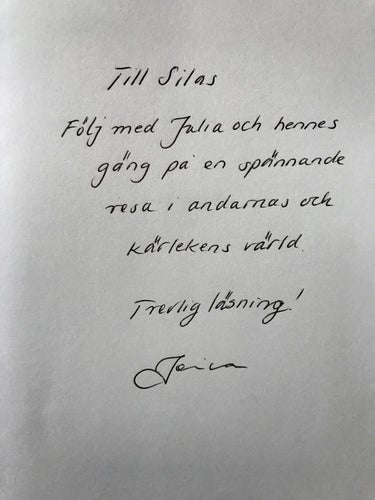 Till Silas
Följ med Julia och hennes
gäng på en spännande
resa i andarnas och
kärlekens värld.
Trevlig läsning!